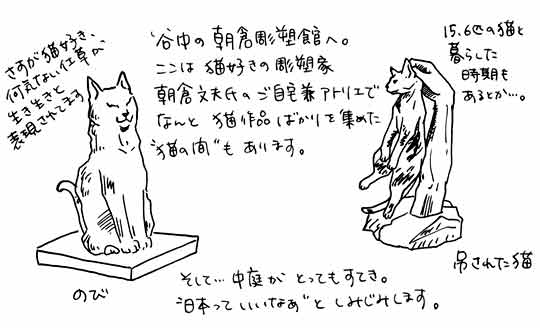 谷中の朝倉彫塑館へ。
ここは猫好きの彫塑家
朝倉文夫氏のご自宅兼アトリエで
なんと猫作品ばかりを集めた
"猫の間"もあります。
さすが猫好き、
何気ない仕草が
生き生きと
表現されてます
15.6匹の猫と
暮らした
時期も
あるとか…。
のび
吊された猫
そして…中庭がとってもすてき。
"日本っていいなあ"としみじみします。